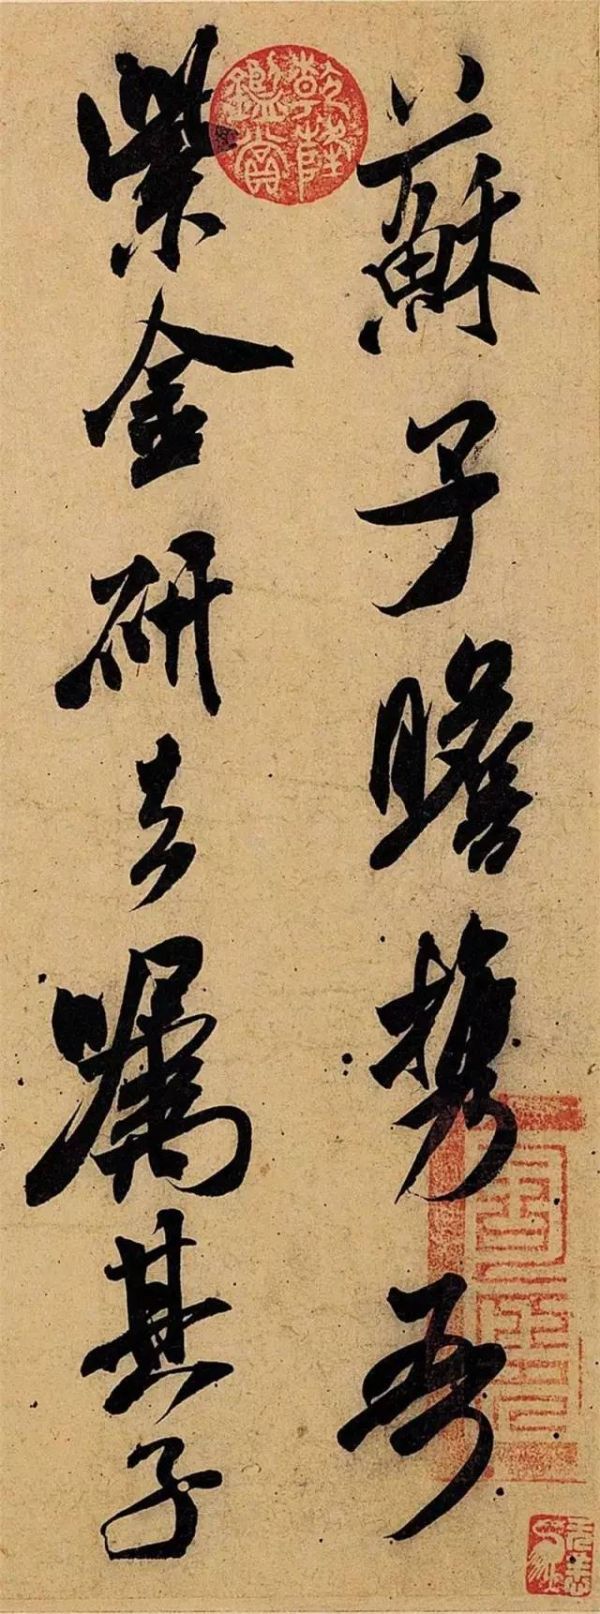 蘇子瞻攜吾
紫金研去嘱其子
乾隆鑑賞